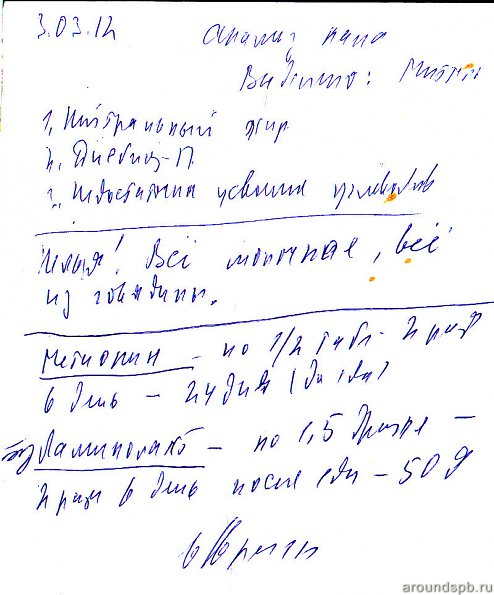 3.03.12
Анализ кала
Видимо:
1. Нейтральный жир
2.
3. усвоения углеводов
Нельзя! Всё молочное, всё
из говядины.
Метионин – по 1/2 табл. 2 раза
в день – 24 дня (до еды)
Ламинолакт – по 1,5 драже –
2 раза в день после еды – 50 д
aroundspb.ru